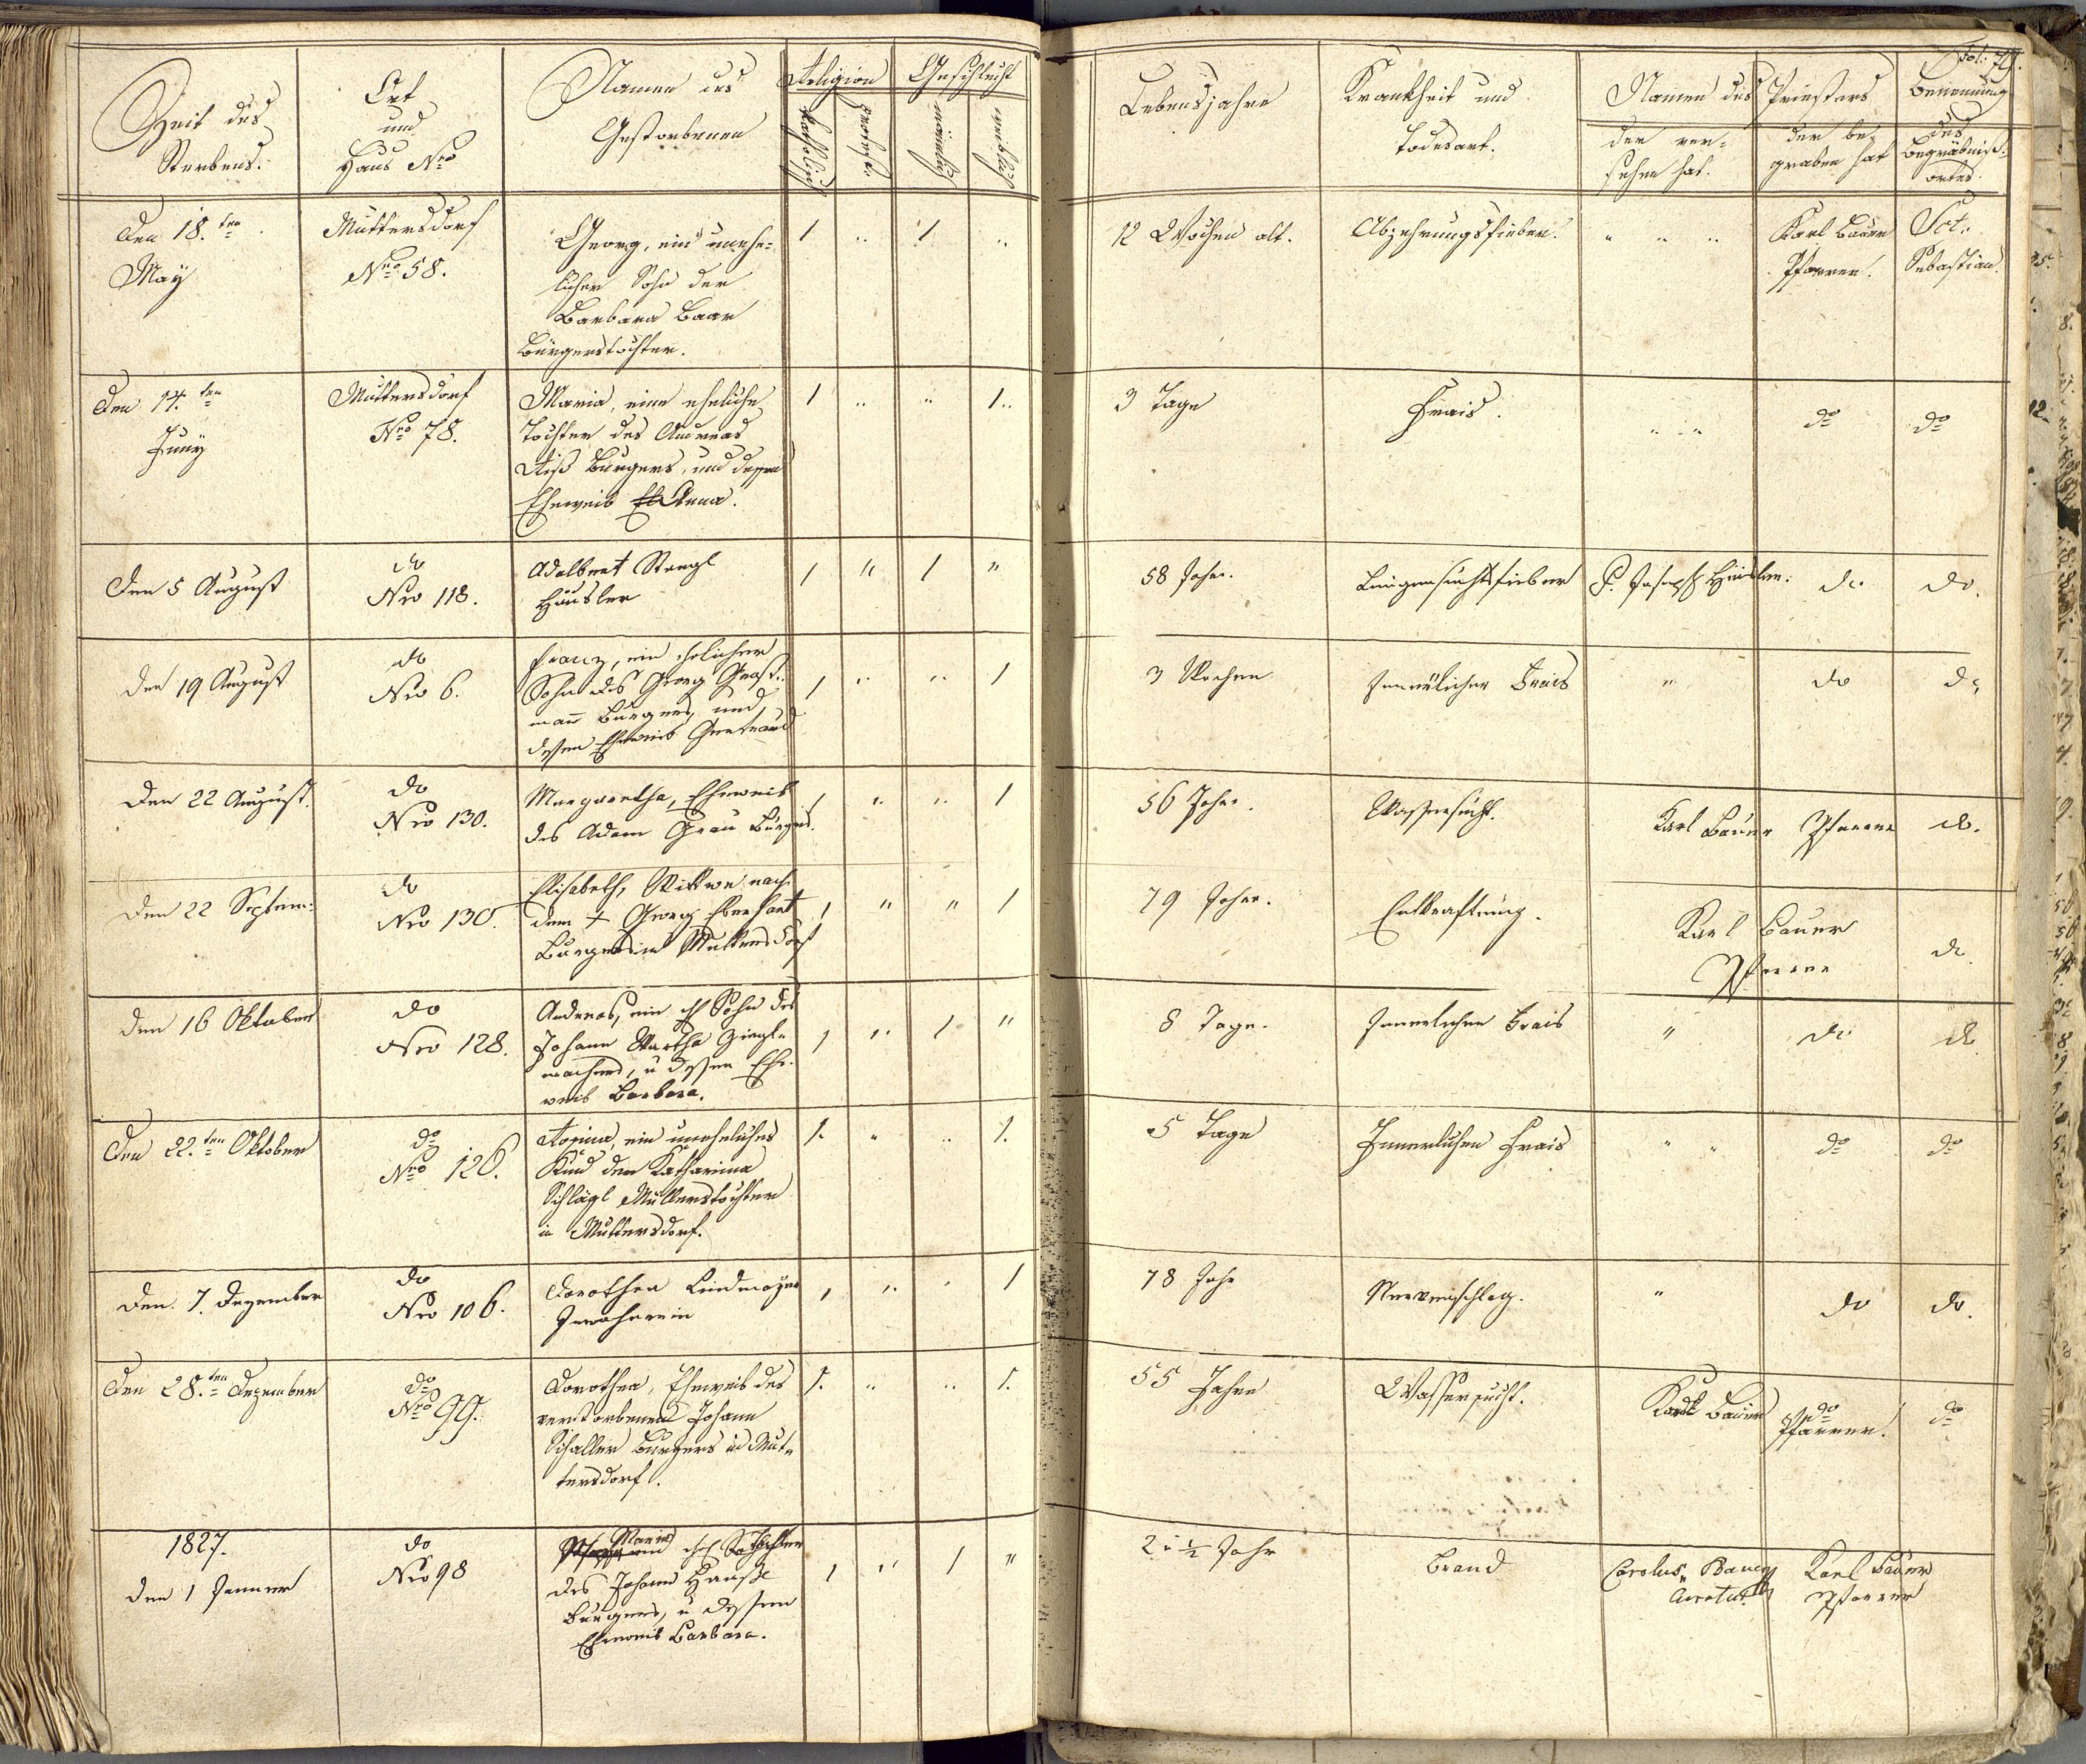 Fol: 79.
Zeit des
Sterbens.
Ort
und
Haus Nro
Namen des
Gestorbenen
Religion
katholisch
protest:
Geschlecht
männlich
weiblich
Lebensjahre
Krankheit und
Todesart.
Namen des Priesters
der ver-
sehen hat.
der be-
graben hat
Benennung
des
Begräbniß-
ortes.
Den 18.ten
May
Muttersdorf
Nro 58.
Georg, ein unehe-
licher Sohn der
Barbara Baar
Bürgerstochter.
1 .. 1 ..
12 Wochen alt.
Abzehrungsfieber.
" " "
Karl Bauer
Pfarrer.
Sct.
Sebastian.
Den 14.ten
Juny
Muttersdorf
Nro 78.
Maria, eine eheliche
Tochter des Andreas
Burgers, und dessen
Eheweib Anna.
1 .. " 1..
3 Tage
Frais.
" " "
do
do
Den 5 August
do
Nro 118.
Adalbert Stengl
Häusler
1 " 1 "
58 Jahr.
Lungensuchtsfieber
P. Joseph
do
do.
Den 19 August
do
Nro 6.
Franz, ein ehelicher
Sohn des Georg
mañ Burgers, und
dessen Eheweib Gertraud
1 .. .. 1
3 Wochen
Innerlicher Frais
"
do
do
Den 22 August.
do
Nro 130.
Margaretha, Eheweib
des Adam Grau Burgers.
1 .. .. 1
56 Jahr.
Wassersucht.
Karl Bauer Pfarrer
do.
Den 22 Septem:
do
Nro 130.
Elisabeth, Wittwe nach
dem + Georg Eberhart
Burgers in Muttersdorf
1 " " 1
79 Jahr.
Entkräftung.
Karl Bauer
Pfarrer
do
Den 16 Oktober
do
Nro 128.
Andreas, ein eh Sohn des
Johann Wartha Ziegl-
machers, u dessen Ehe-
weib Barbara.
1 .. 1 "
8 Tage.
Innerlichen Frais
"
do
do
Den 22.ten Oktober
do
Nro 126.
ein uneheliches
Kind der Katharina
Schlägl Müllerstochter
in Muttersdorf.
1. " .. 1.
5 Tage
Innerlichen Frais
" "
do
do
Den 7. Dezember
do
Nro 106.
Dorothea Lindmayer
Inwohnerin
1 .. . 1
78 Jahr
Nervenschlag.
"
do
do.
Den 28.ten Dezember
do
Nro 99.
Dorothea, Eheweib des
verstorbenen Johann
Schaller Burgers in Mut-
tersdorf.
1. .. .. 1.
55 Jahre
Wassersucht.
Karl Bauer
do
Pfarrer.
do
1827.
Den 1 Jenner
do
Nro 98
Maria
ehel Tochter
des Johann
Burgers, u dessen
Eheweib Barbara.
1 .. 1 "
2 u ½ Jahr
Brand
Carolus Bauer
Curatus
Karl Bauer
Pfarrer